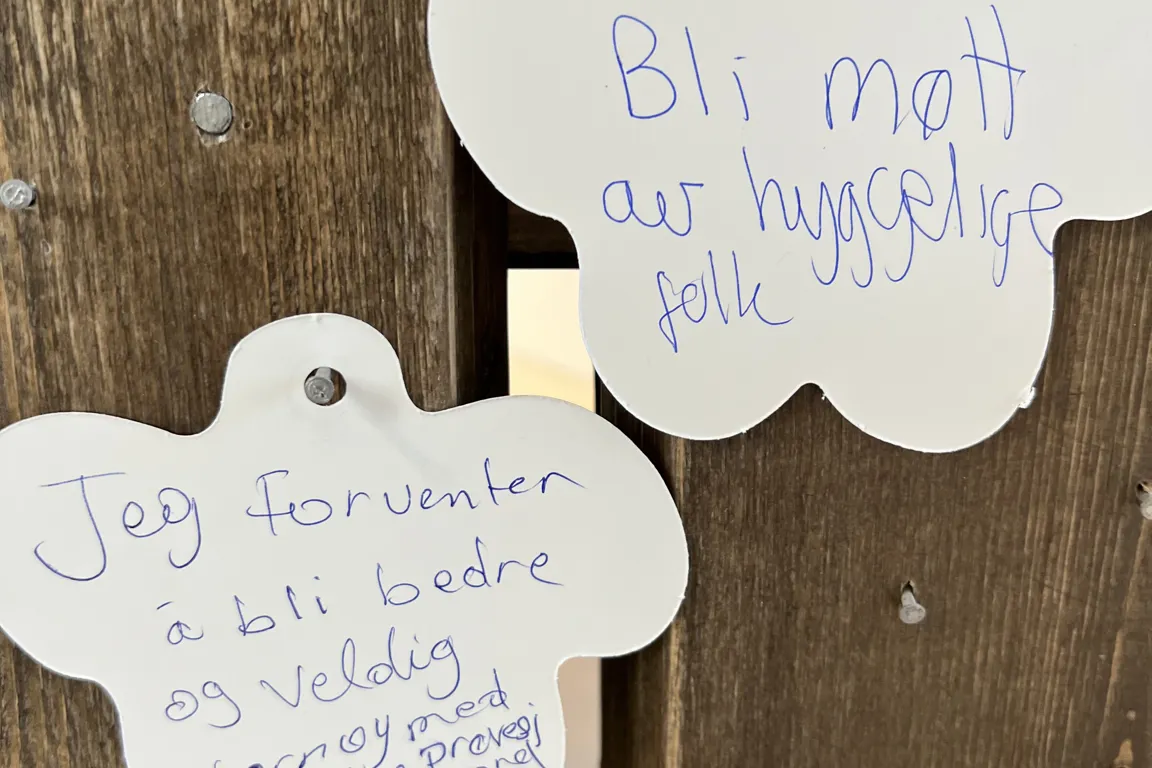 Bli møtt
av hyggelige
folk
Jeg forventer
å bli bedre
og veldig
med